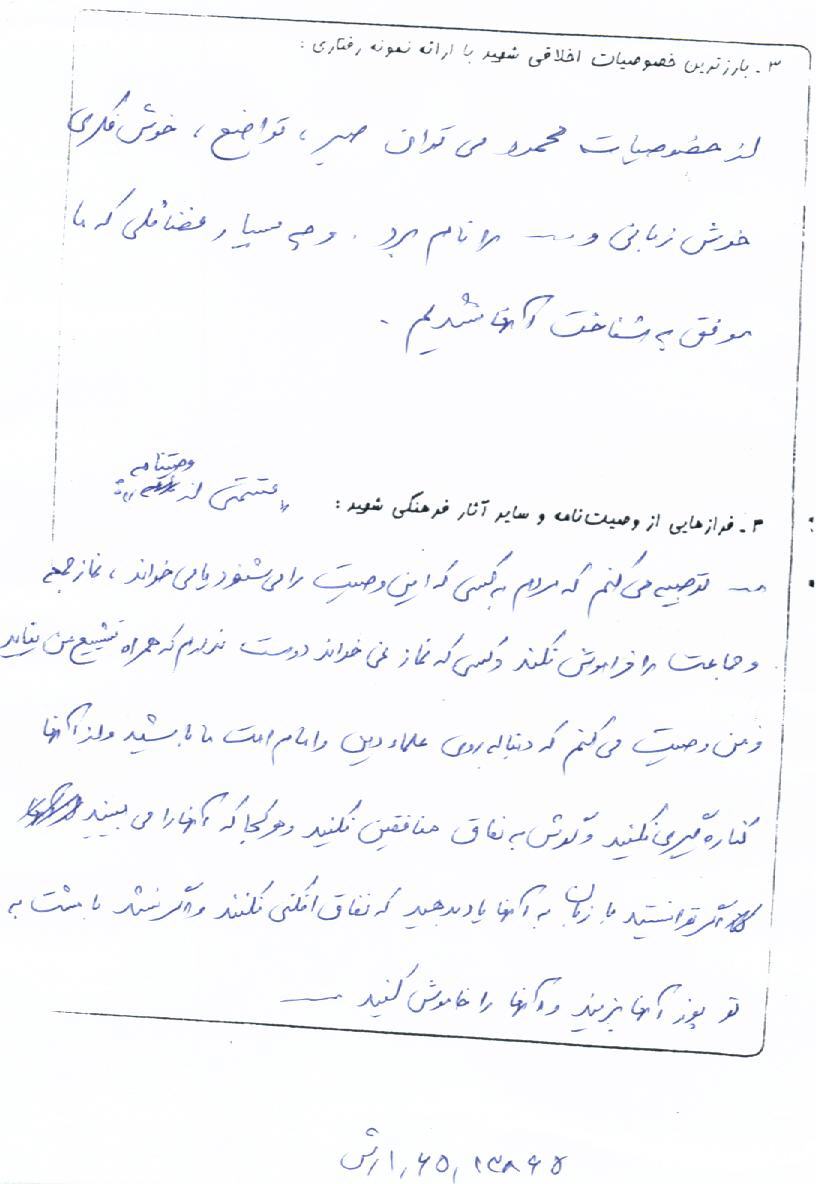 ۳ـ بارزترین خصوصیات اخلاقی شهید با ارائه نمونه رفتاری :
از خصوصیات محمود می توان صبر ، تواضع ، خوش فکری
خوش زبانی و ... را نام برد . و چه بسیار فضائلی که ما
موفق به شناخت آنها نشدیم .
۴ـ فرازهایی از وصیت‌نامه و سایر آثار فرهنگی شهید : «قسمتی از وصیتنامه»
... توصیه می کنم که مردم به کسی که این وصیت را می شنود یا می خواند ، نماز جمعه
و جماعت را فراموش نکند و کسی که نماز نمی خواند دوست ندارم که همراه تشییع من بیاید
و من وصیت می کنم که دنباله روی علماء دین و امام امت ما باشید و از آنها
کناره گیری نکنید و گوش به نفاق منافقین نکنید و هر کجا که آنها را می بینید
اگر توانستید با زبان به آنها یاد بدهید که نفاق افکنی نکنند و اگر نشد با مشت به
تو پوز آنها بزنید و آنها را خاموش کنید ...